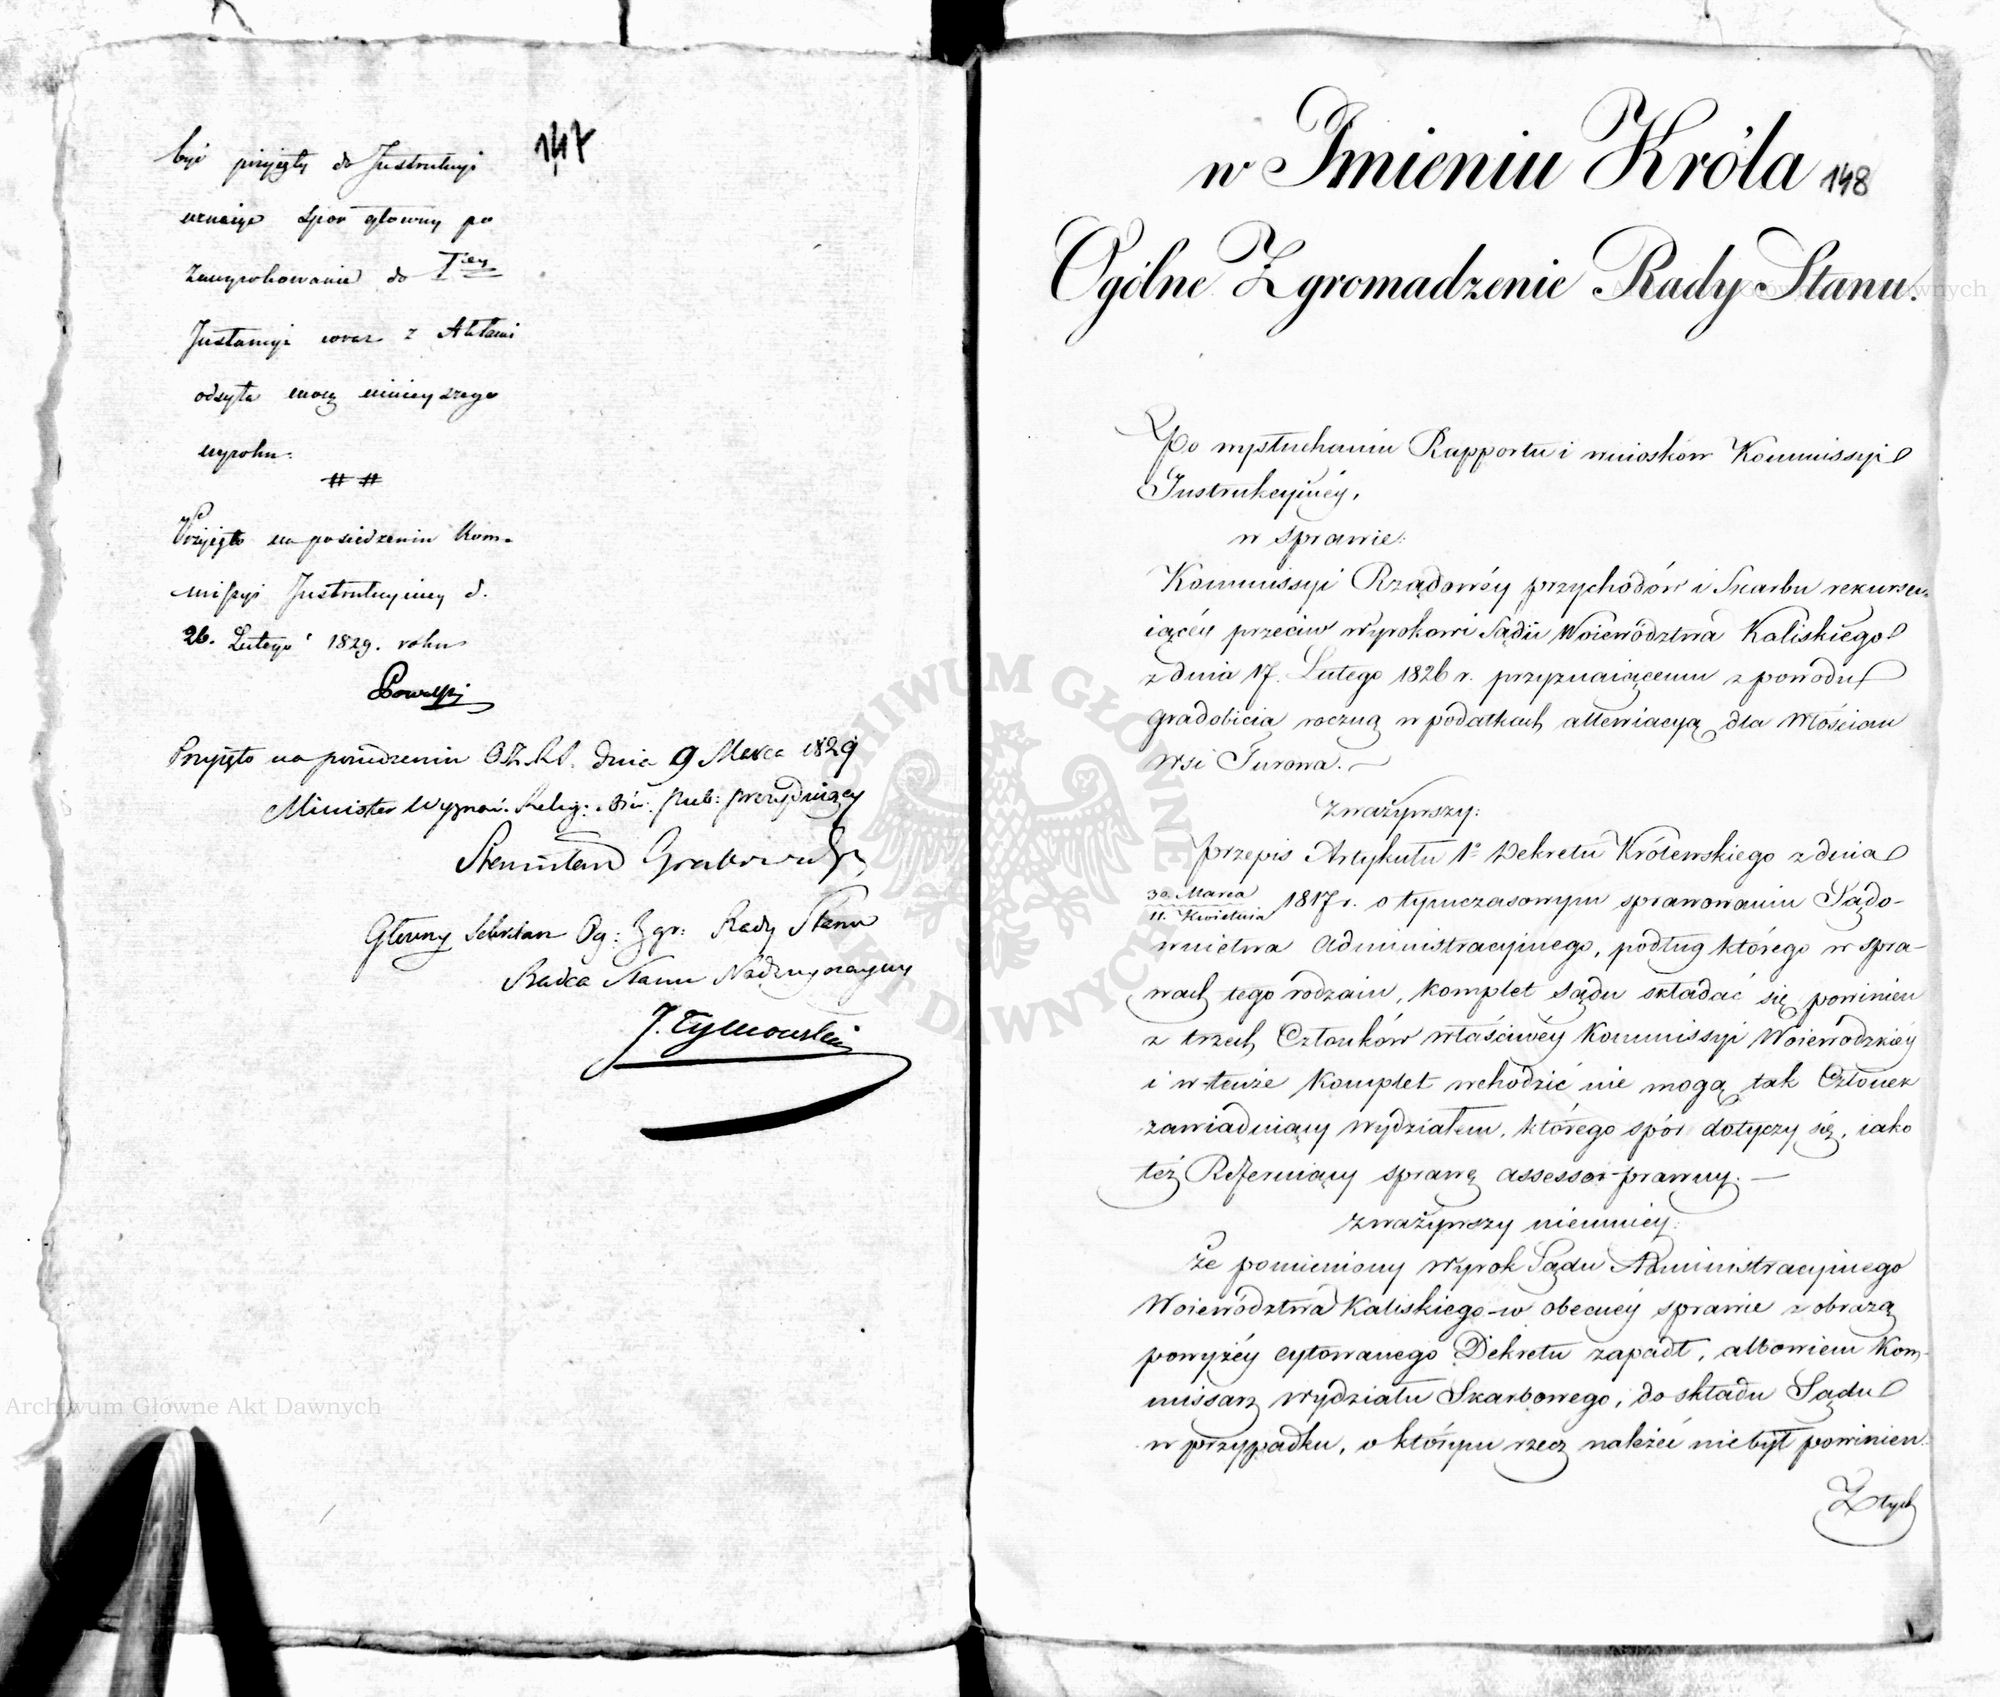 147
być przyięty do Instrukcyi
uznaiąc spór główny po
zawyrokowanie do I<sup>ey</sup>
Instancyi wraz z Aktami
odsyła mocą ninieyszego
wyroku.
Przyięto na posiedzeniu Kom-
missyi Instrukcyiney d.
26. Lutego 1829. roku
Przyięto na posiedzeniu O.Z.R.S. dnia 9 Marca 1829
Minister Wyznań. Relig: i Ośw. Pub: prezyduiący
Stanisław Grabowski
Główny Sekretarz Og: Zgr: Rady Stanu
Radca Stanu Nadzwyczayny
J. Tymowski
w Imieniu Króla 148
Ogólne Zgromadzenie Rady Stanu.
Po wysłuchaniu Rapportu i wniosków Kommissyi
Instrukcyinéy,
w sprawie:
Kommissyi Rządowéy przychodów i Skarbu rekursu-
iącéy przeciw wyrokowi Sądu Woiewództwa Kaliskiego
z dnia 17. Lutego 1826 r. przyznaiącemu z powodu
gradobicia roczną w podatkach allewiacyą dla Włościan
wsi Turowa.
Zważywszy:
przepis Artykułu 1º Dekretu Królewskiego z dnia
30 Marca / 11. Kwietnia 1817 r. o tymczasowym sprawowaniu Sądo-
wnictwa Administracyinego, podług którego w spra-
wach tego rodzaiu, komplet Sądu składać się powinien
z trzech Członków właściwéy Kommissyi Woiewódzkiéy
i w tenże komplet wchodzić nie mogą tak Członek
zawiaduiący wydziałem, którego spór dotyczy się, iako
też Referuiący sprawę assessor prawny. —
Zważywszy niemniéy:
Że pomieniony wyrok Sądu Administracyinego
Woiewództwa Kaliskiego w obecnéy sprawie z obrazą
powyżéy cytowanego Dekretu zapadł, albowiem Kom-
missarz Wydziału Skarbowego, do składu Sądu
w przypadku, o którym rzecz należéć niebył powinien.
Z tych
Archiwum Główne Akt Dawnych
Archiwum Główne Akt Dawnych
ARCHIWUM GŁÓWNE AKT DAWNYCH